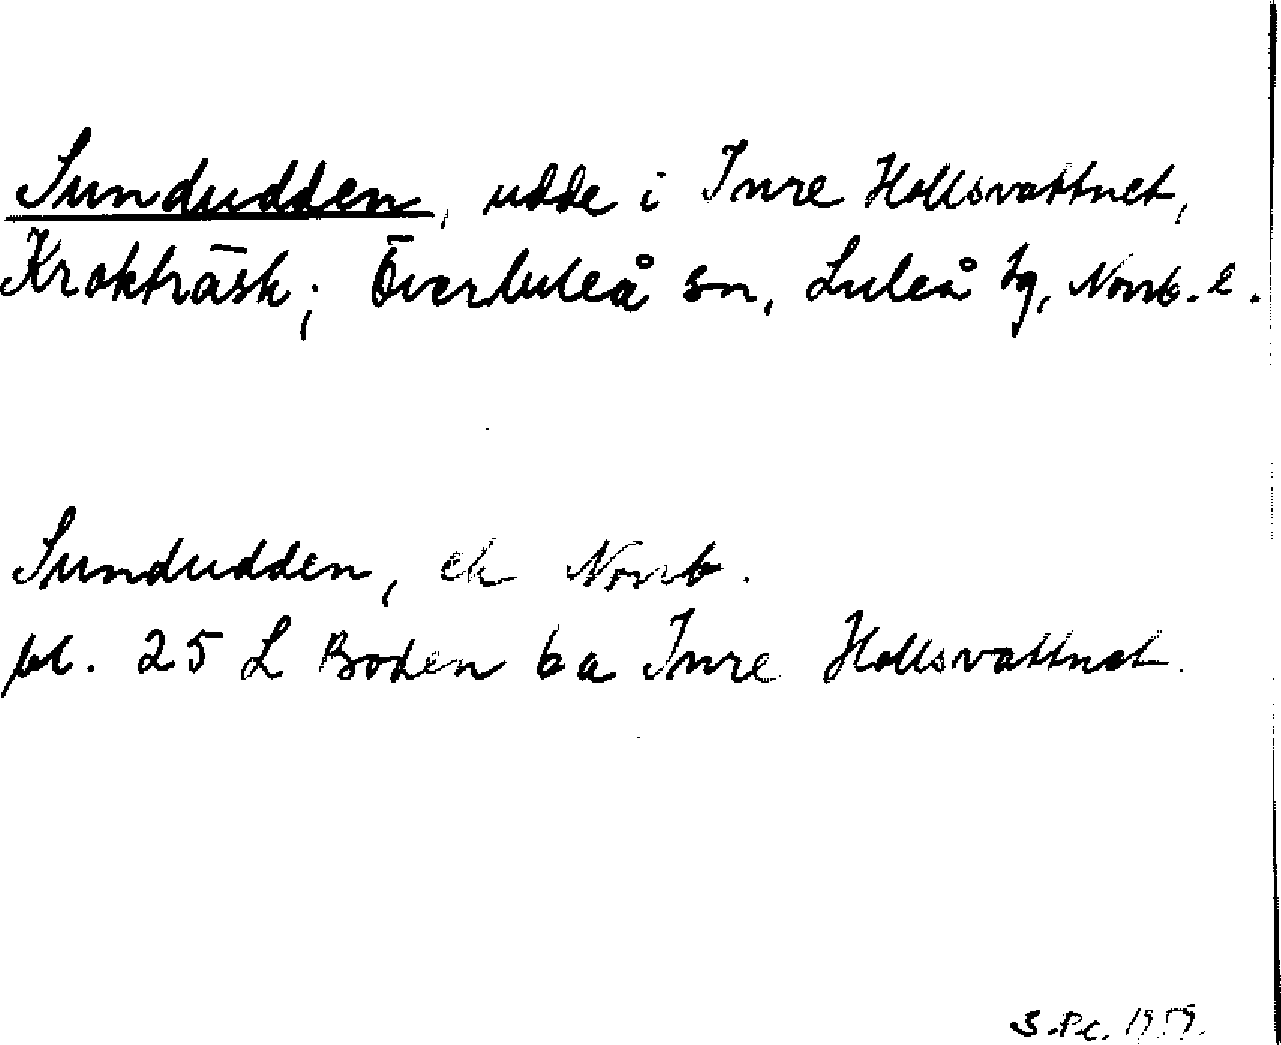 Sundudden, udde i Inre Hollsvattnet,
Krokträsk; Överluleå sn, Luleå tg, Norrb. l.
Sundudden, ek Norrb.
bl. 25 L Boden 6 a Inre Hollsvattnet.
1959.